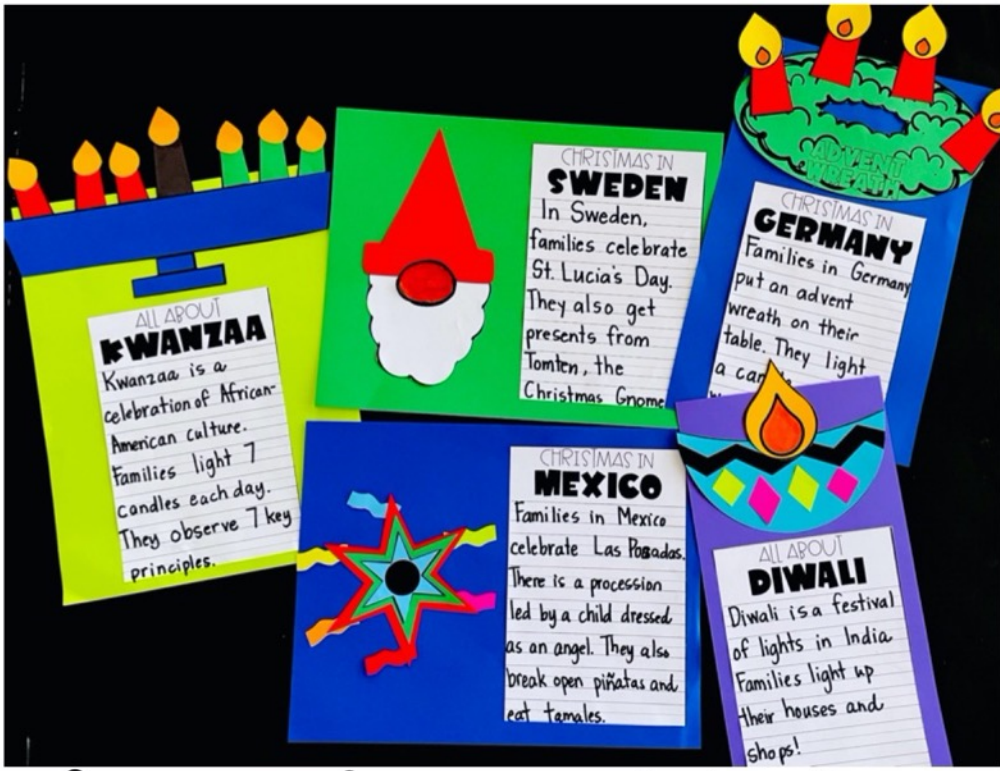 ALL ABOUT
KWANZAA
Kwanzaa is a
celebration of African-
American culture.
Families light 7
candles each day.
They observe 7 key
principles.
CHRISTMAS IN
SWEDEN
In Sweden,
families celebrate
St. Lucia's Day.
They also get
presents from
Tomten, the
Christmas Gnome
ADVENT
WREATH
CHRISTMAS IN
GERMANY
Families in Germany
put an advent
wreath on their
table. They light
a
CHRISTMAS IN
MEXICO
Families in Mexico
celebrate Las Posadas.
There is a procession
led by a child dressed
as an angel. They also
break open piñatas and
eat tamales.
ALL ABOUT
DIWALI
Diwali is a festival
of lights in India
Families light up
their houses and
shops!